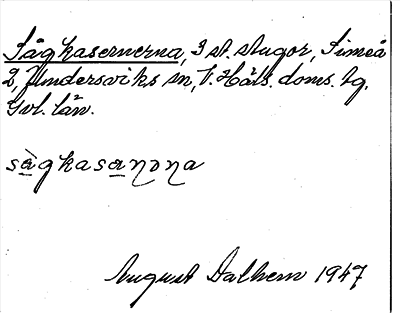 Sågkasernerna, 3 st. stugor, Simeå
2, Undersviks sn, V. Häls. doms. tg.
Gvl. län.
sågkasaɳəɳa
August Dalhem 1947